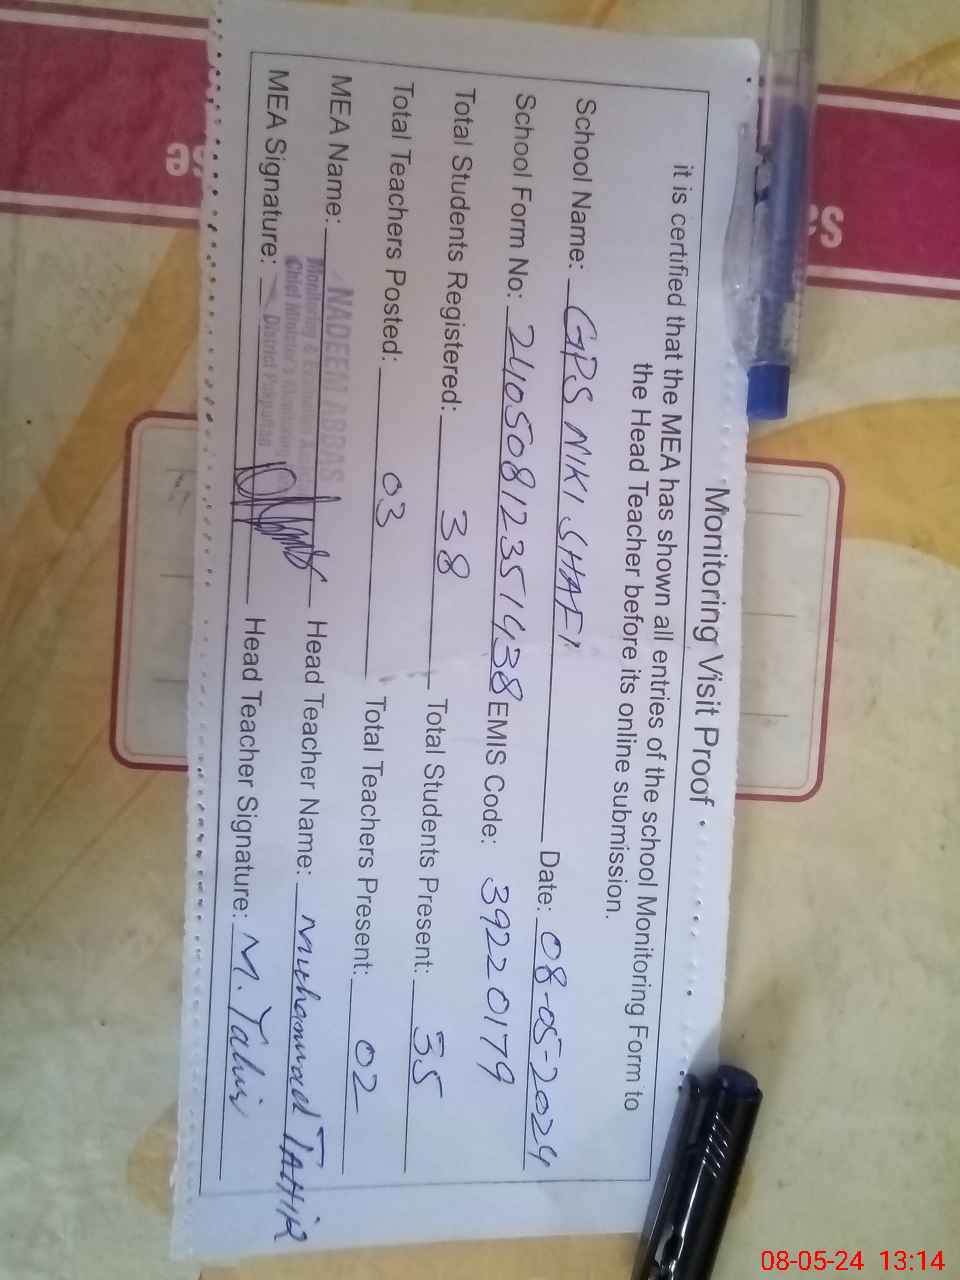 Monitoring Visit Proof
it is certified that the MEA has shown all entries of the school Monitoring Form to
the Head Teacher before its online submission.
School Name: GPS NIKI SHAFI Date: 08-05-2024
School Form No: 24050812351438 EMIS Code: 39220179
Total Students Registered: 38 Total Students Present: 35
Total Teachers Posted: 03 Total Teachers Present: 02
MEA Name: NADEEM ABBAS Head Teacher Name: Muhammad TAHIR
Monitoring &
Chief Minister's
District
MEA Signature: Head Teacher Signature: M. Tahir
08-05-24 13:14